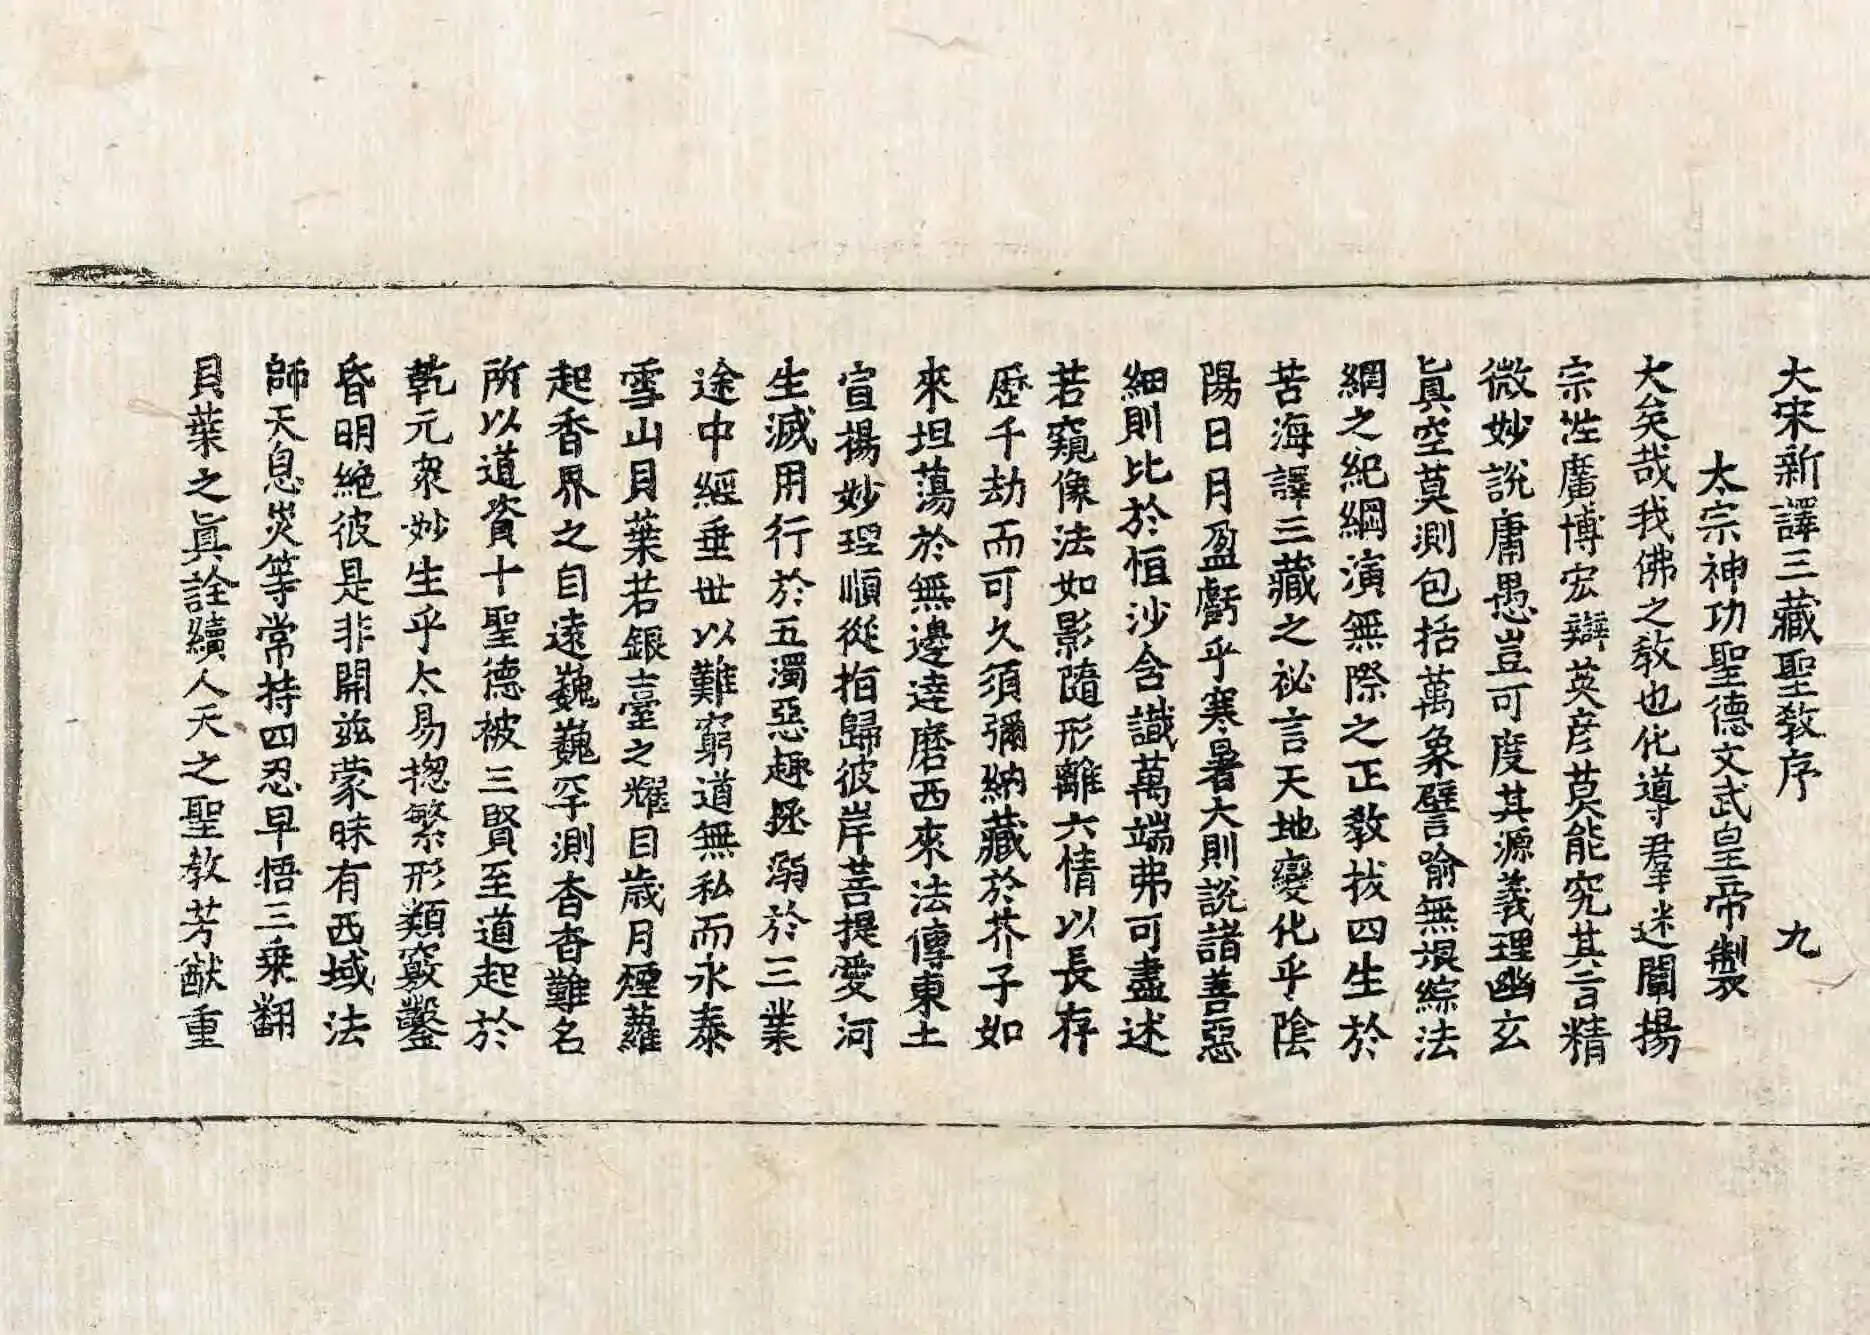 大宋新譯三藏聖教序 九
太宗神功聖德文武皇帝製
大矣哉我佛之教也化導羣迷闡揚
宗性廣博宏辯英彥莫能究其言精
微妙說庸愚豈可度其源義理幽玄
眞空莫測包括萬象譬喻無垠綜法
網之紀綱演無際之正教拔四生於
苦海譯三藏之祕言天地變化乎陰
陽日月盈虧乎寒暑大則說諸善惡
細則比於恒沙含識萬端弗可盡述
若窺像法如影隨形離六情以長存
歷千劫而可久須彌納藏於芥子如
來坦蕩於無邊達磨西來法傳東土
宣揚妙理順從指歸彼岸菩提愛河
生滅用行於五濁惡趣拯溺於三業
途中經垂世以難窮道無私而永泰
雪山貝葉若銀臺之耀目歲月煙蘿
起香界之自遠巍巍罕測杳杳難名
所以道資十聖德被三賢至道起於
乾元衆妙生乎太易揔繁形類竅鑿
昏明絶彼是非開兹蒙昧有西域法
師天息災等常持四忍早悟三乘翻
貝葉之眞詮續人天之聖教芳猷重